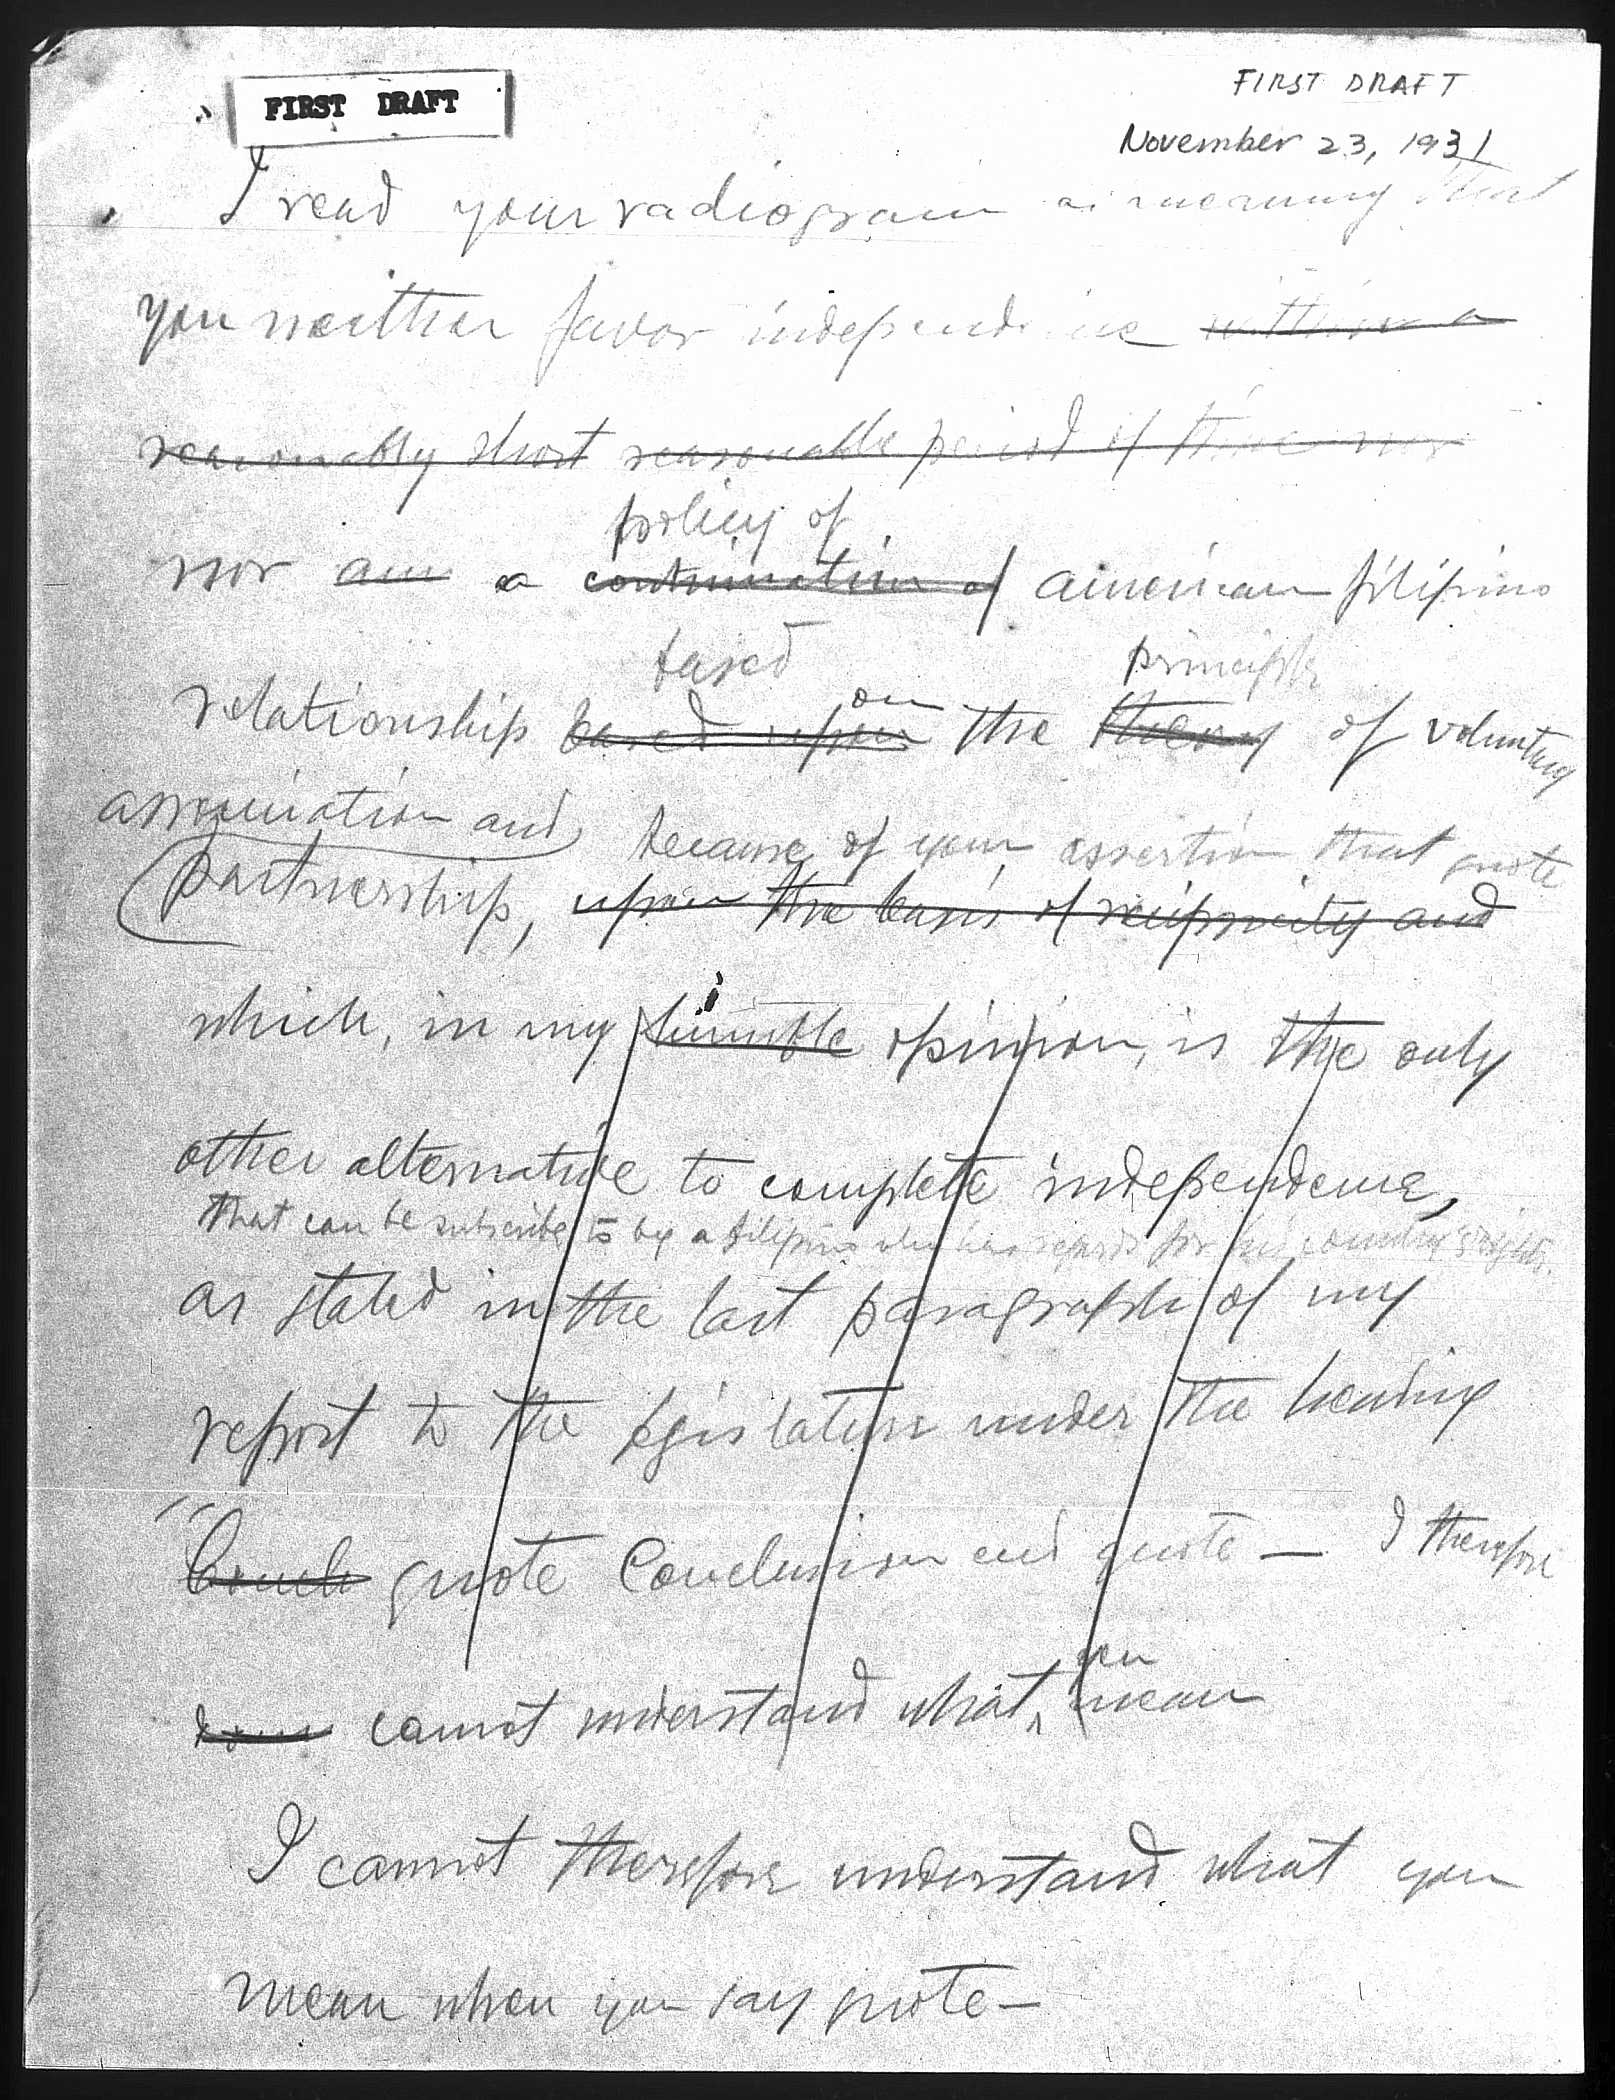 FIRST DRAFT
FIRST DRAFT
November 23, 1931
I read your radiogram as meaning that
you neither favor independence within a
reasonably short reasonable period of time nor
policy of
nor a continuation of american filipino
based principle
relationship based upon on the theory of voluntary
association and because of your assertion that quote
partnership, upon the basis of reciprocity and
which, in my humble opinion, is the only
other alternative to complete independence,
that can be subscribe to by a filipino who has regards for his country's rights.
as stated in the last paragraph of my
report to the legislature under the heading
" Conclu quote Conclusion end quote — I therefore
cannot understand what you mean
I cannot therefore understand what you
mean when you say quote —